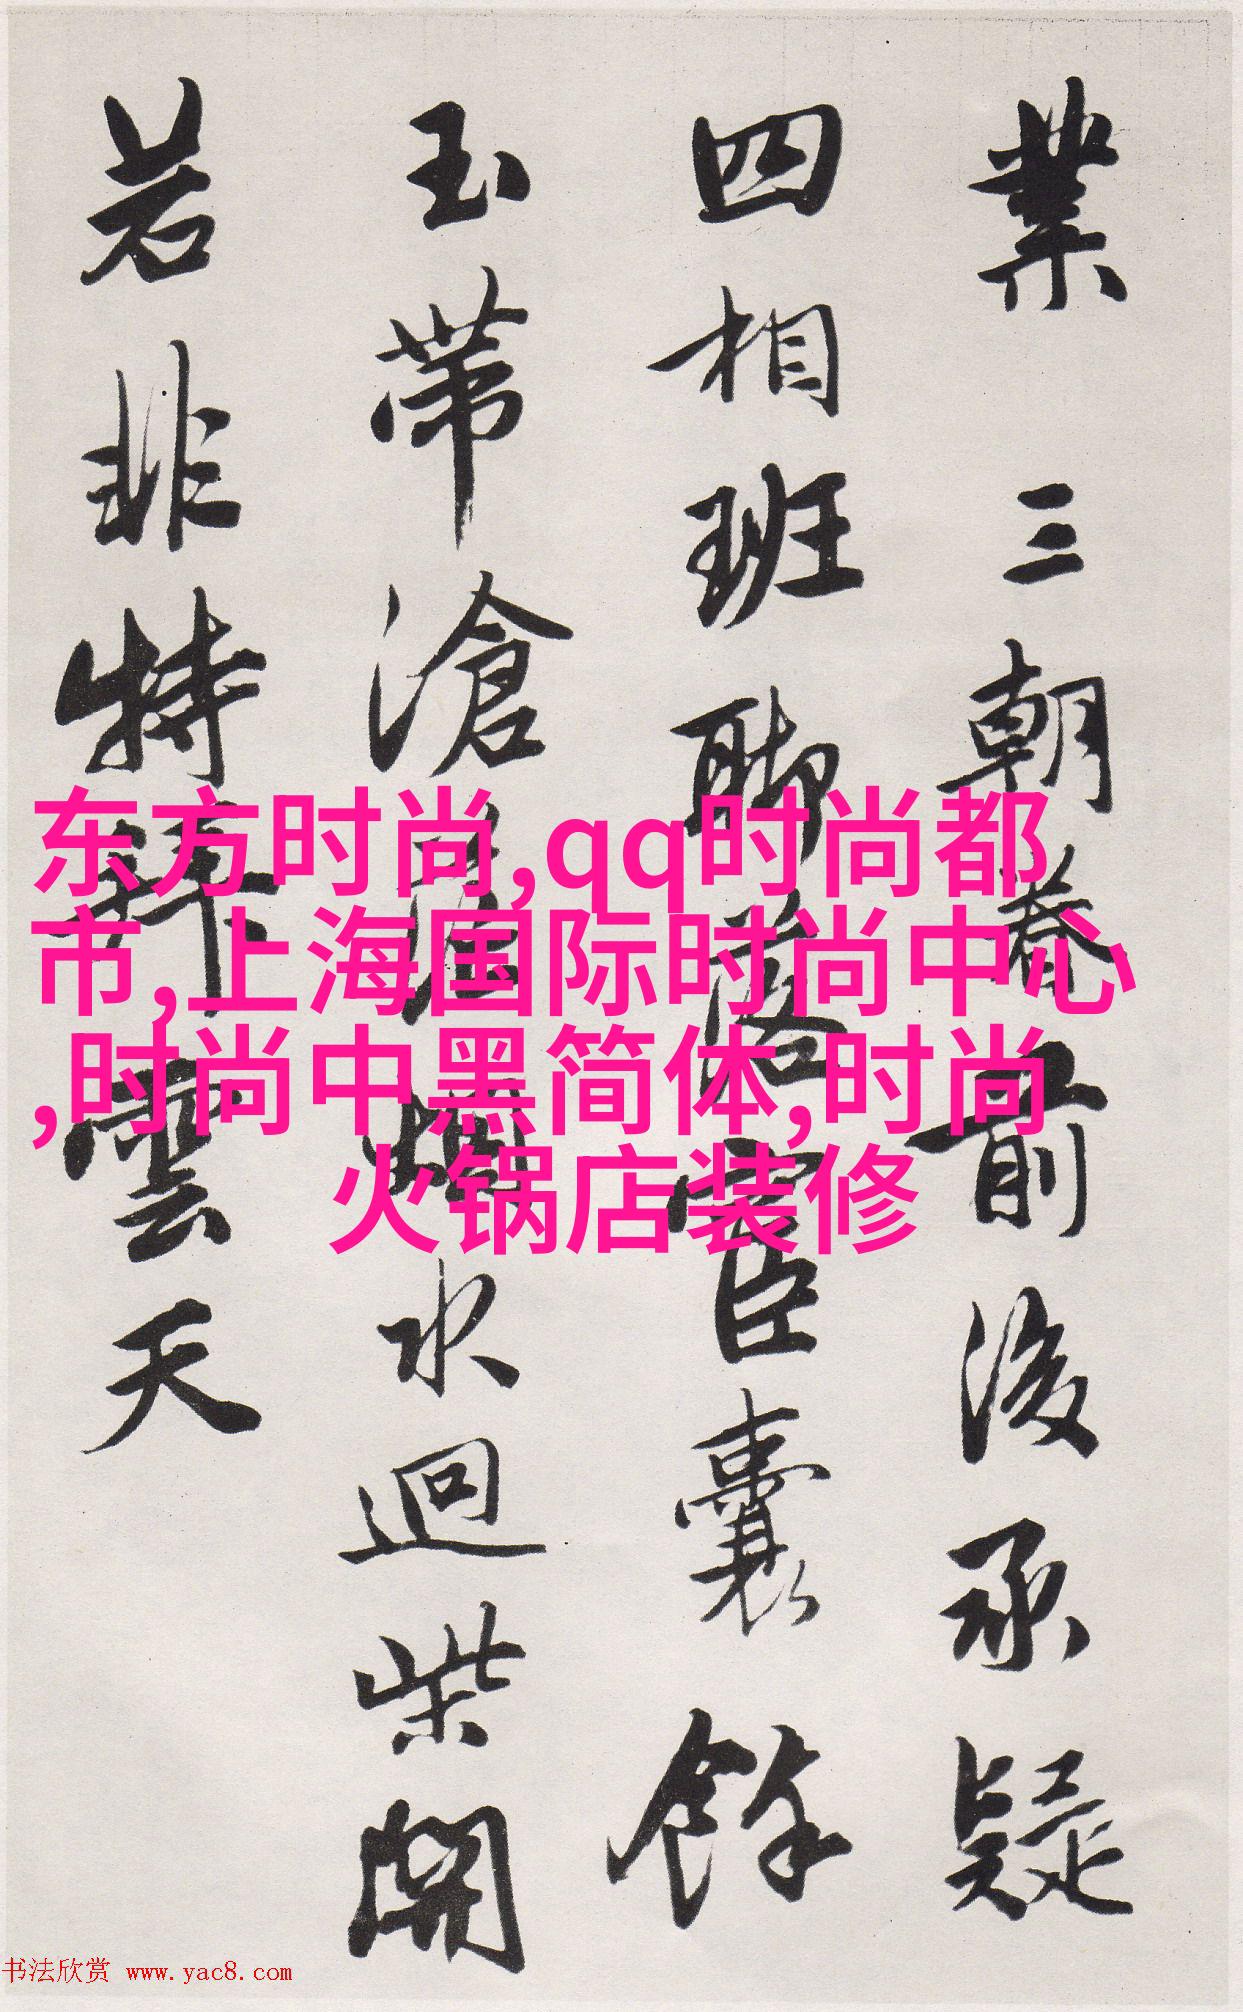 業 三朝眷前後承疑
四相班聯臣囊餘
玉帶滄水迴柴開
若非特雲天
东方时尚,qq时尚都
市,上海国际时尚中心
,时尚中黑简体,时尚
火锅店装修
书法欣赏 www.yac8.com